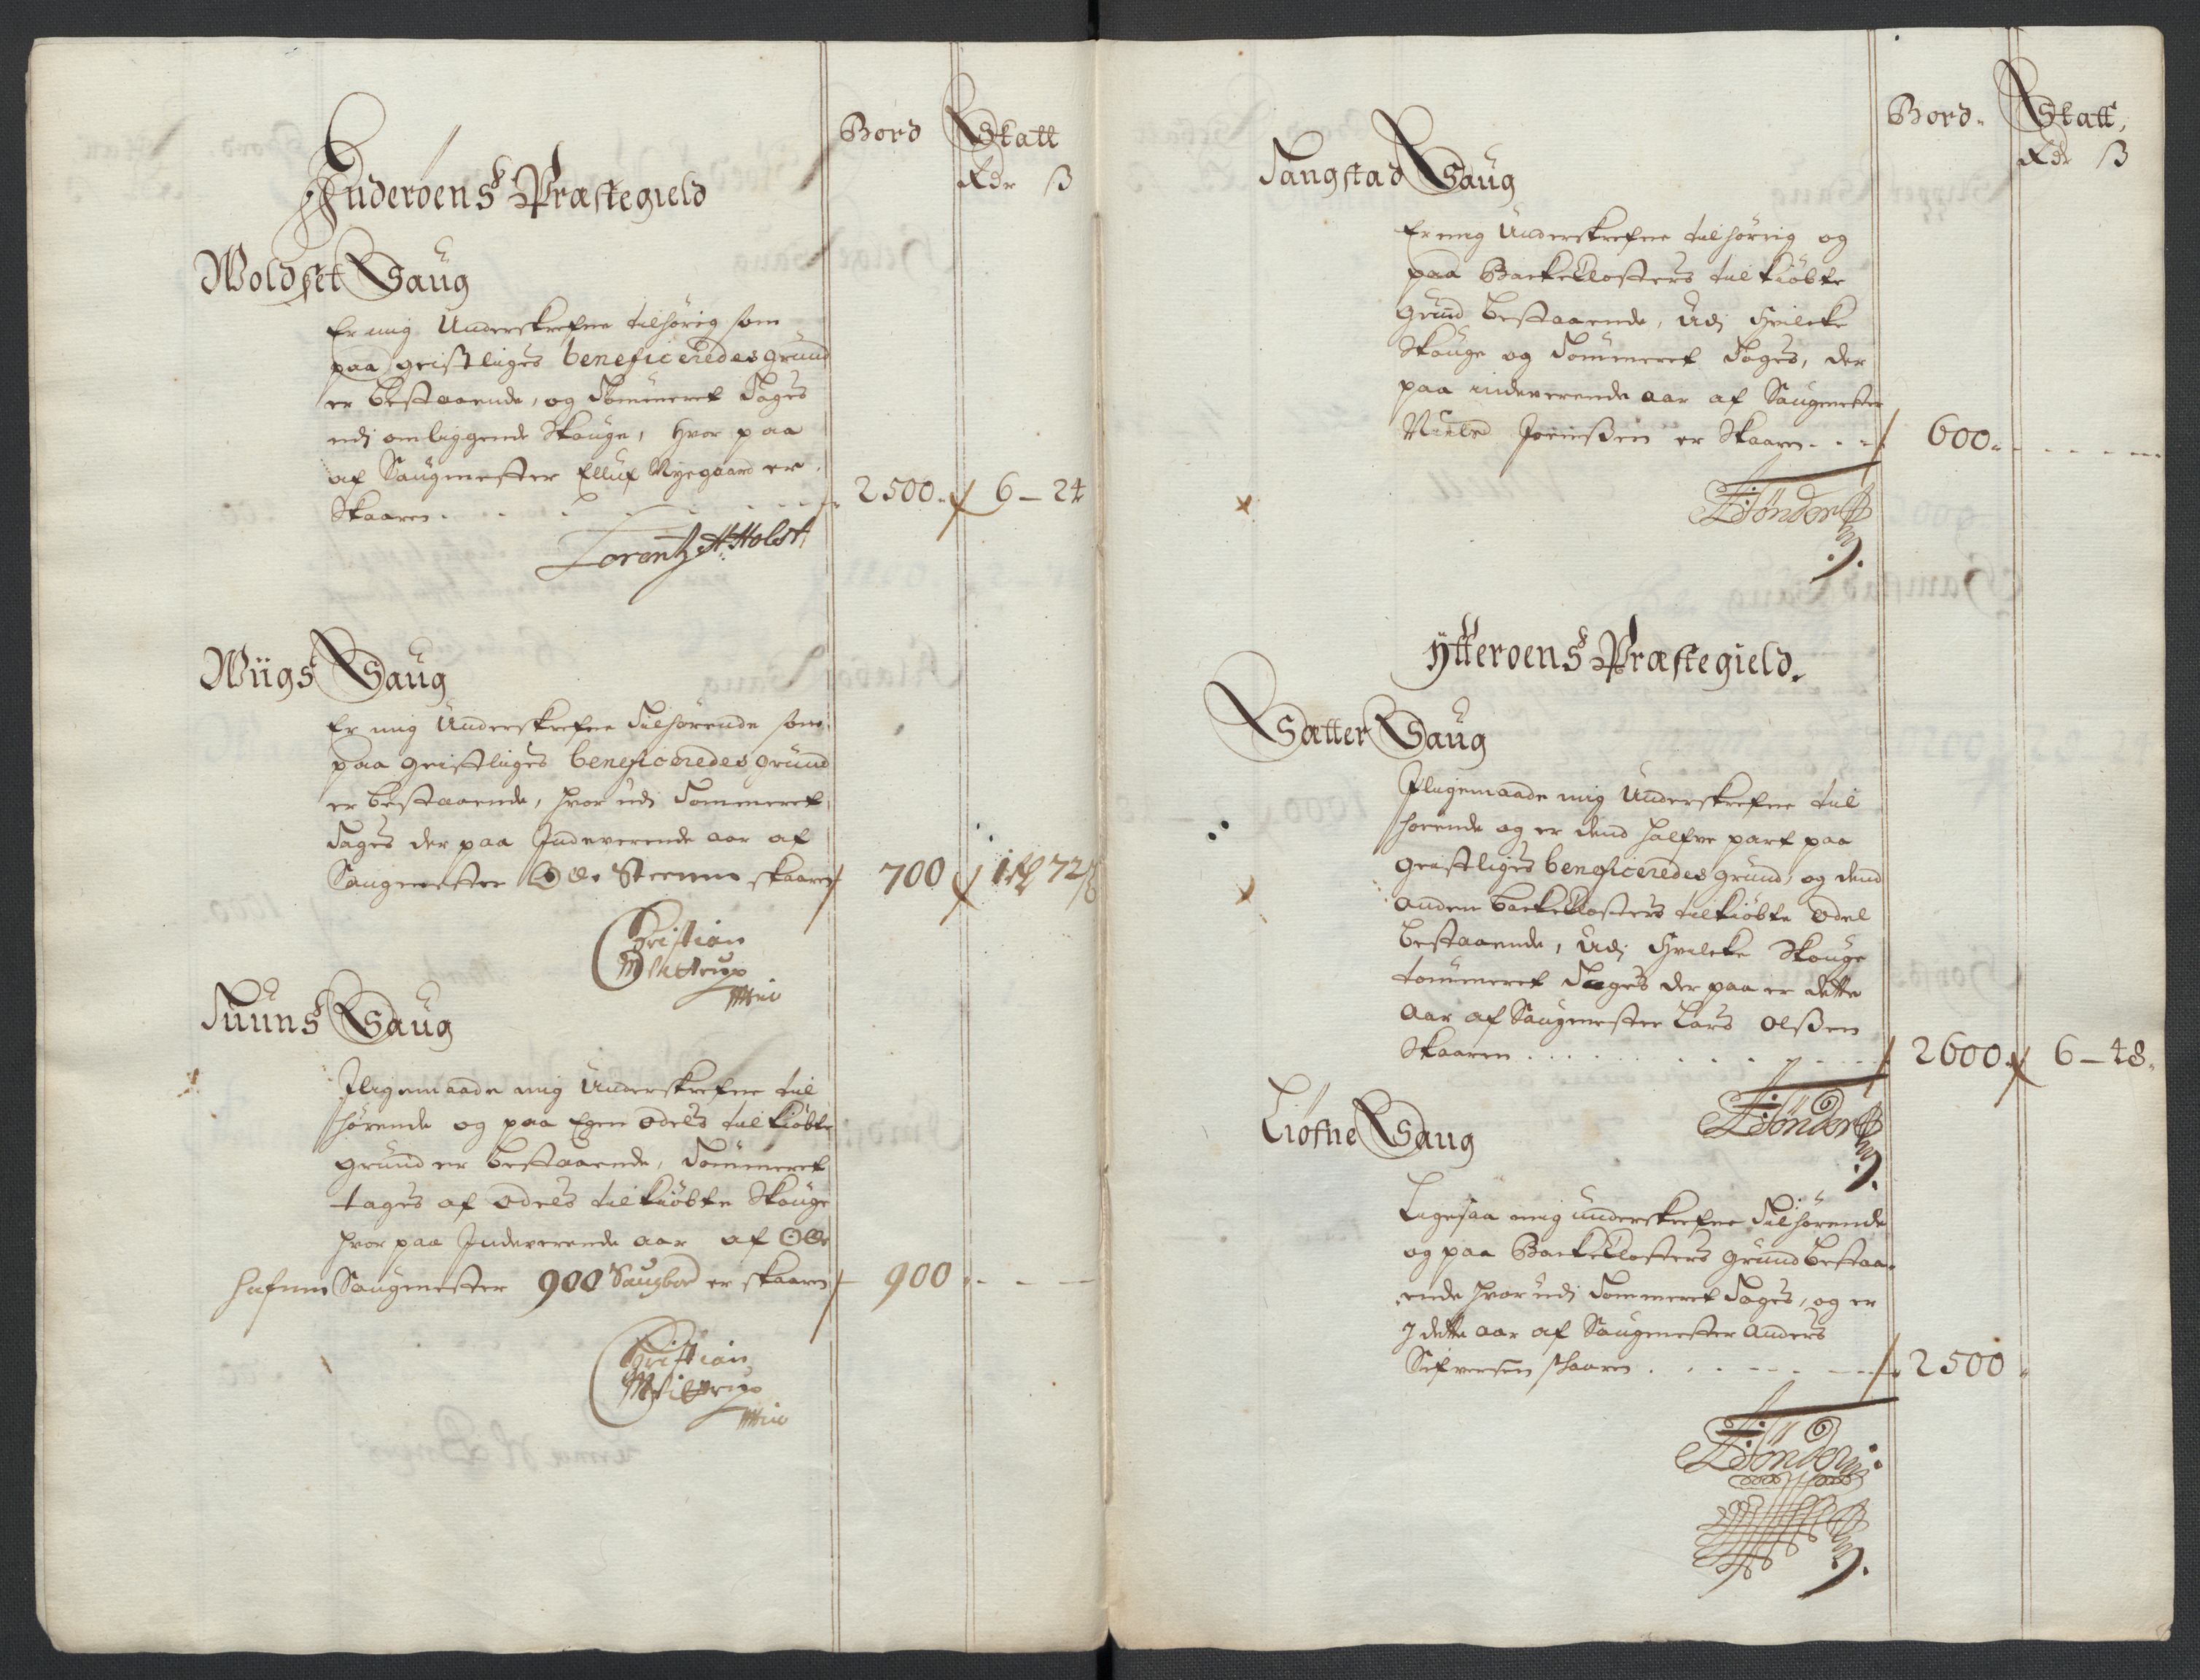 Bord Skatt
Rdr ß
Inderöens Præstegield
Woldset Saug
Er mig Underskrefne tilhörig som
paa geistliges beneficeredes grund
er bestaaende, og Tømmeret Tages
udj omliggende Skouge, hvor paa
af Saugmester Elluf Nyegaard er
Skaaren 2500 6 – 24
Lorentz H: Holst
Wiigs Saug
Er mig Underskrefne Tilhörende som
paa geistliges beneficeredes grund
er bestaaende, hvor udj Tommeret
Tages der paa Indeverende aar af
Saugmester Ole Steenm skaaren 700 1 72
Christian
Mio
Tuuns Saug
Iligemaade mig Underskrefne til
hörende og paa Egen Odels tilkiöbte
grund er bestaaende, Tommeret
tages af Odels tilkiöbte Skouge
hvor paa Indeverende aar af Ole
hafnen Saugmester 900 Saugbord er skaaren 900
Christian
Mio
Bord. Skatt,
Rdr ß
Tangstad Saug
Er mig Underskrefne tilhörrig og
paa Backe Closters tilkiöbte
grund bestaaende, Udj Hvilcke
Skouge og Tommeret Tages, der
paa indeverende aar af Saugmester
Joenßen er Skaaren 600
Sönder
Ytteroens Præstegield.
Sætter Saug
Iligemaade mig Underskrefne til
hörende og er dend halfve part paa
geistliges beneficeredes grund, og dend
anden backe Closters tilkiöbte Odel
bestaaende, Udj Hvilcke Skouge
tommeret Tages der paa er dette
Aar af Saugmester Lars Olßen
Skaaren 2600 6 – 48.
Sönder
Liøfne Saug
Ligesaa mig underskrefne Tilhörende
og paa Backe Closters grund bestaa-
ende hvor udj Tommeret Tages, og er
J dette aar af Saugmester Anders
Sifversen skaaren 2500
Sönder